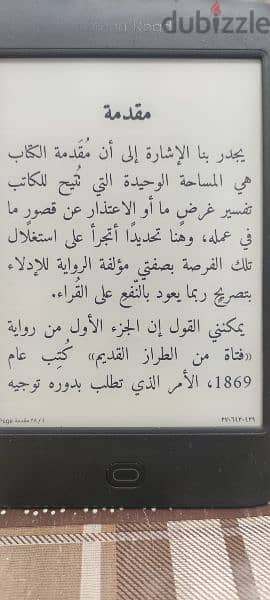 dubizzle
مقدمة
يجدر بنا الإشارة إلى أن مُقَدمة الكتاب
هي المساحة الوحيدة التي تُتيح للكاتب
تفسير غرضٍ ما أو الاعتذار عن قصورٍ ما
في عمله، وهنا تحديدًا أتجرأ على استغلال
تلك الفرصة بصفتي مؤلفة الرواية للإدلاء
بتصريحٍ ربما يعود بالنّفعِ على القُراء.
يمكنني القول إن الجزء الأول من رواية
«فتاة من الطراز القديم» كُتِب عام
1869، الأمر الذي تطلب بدوره توجيه
Page مقدمة ٢٨ / ٤